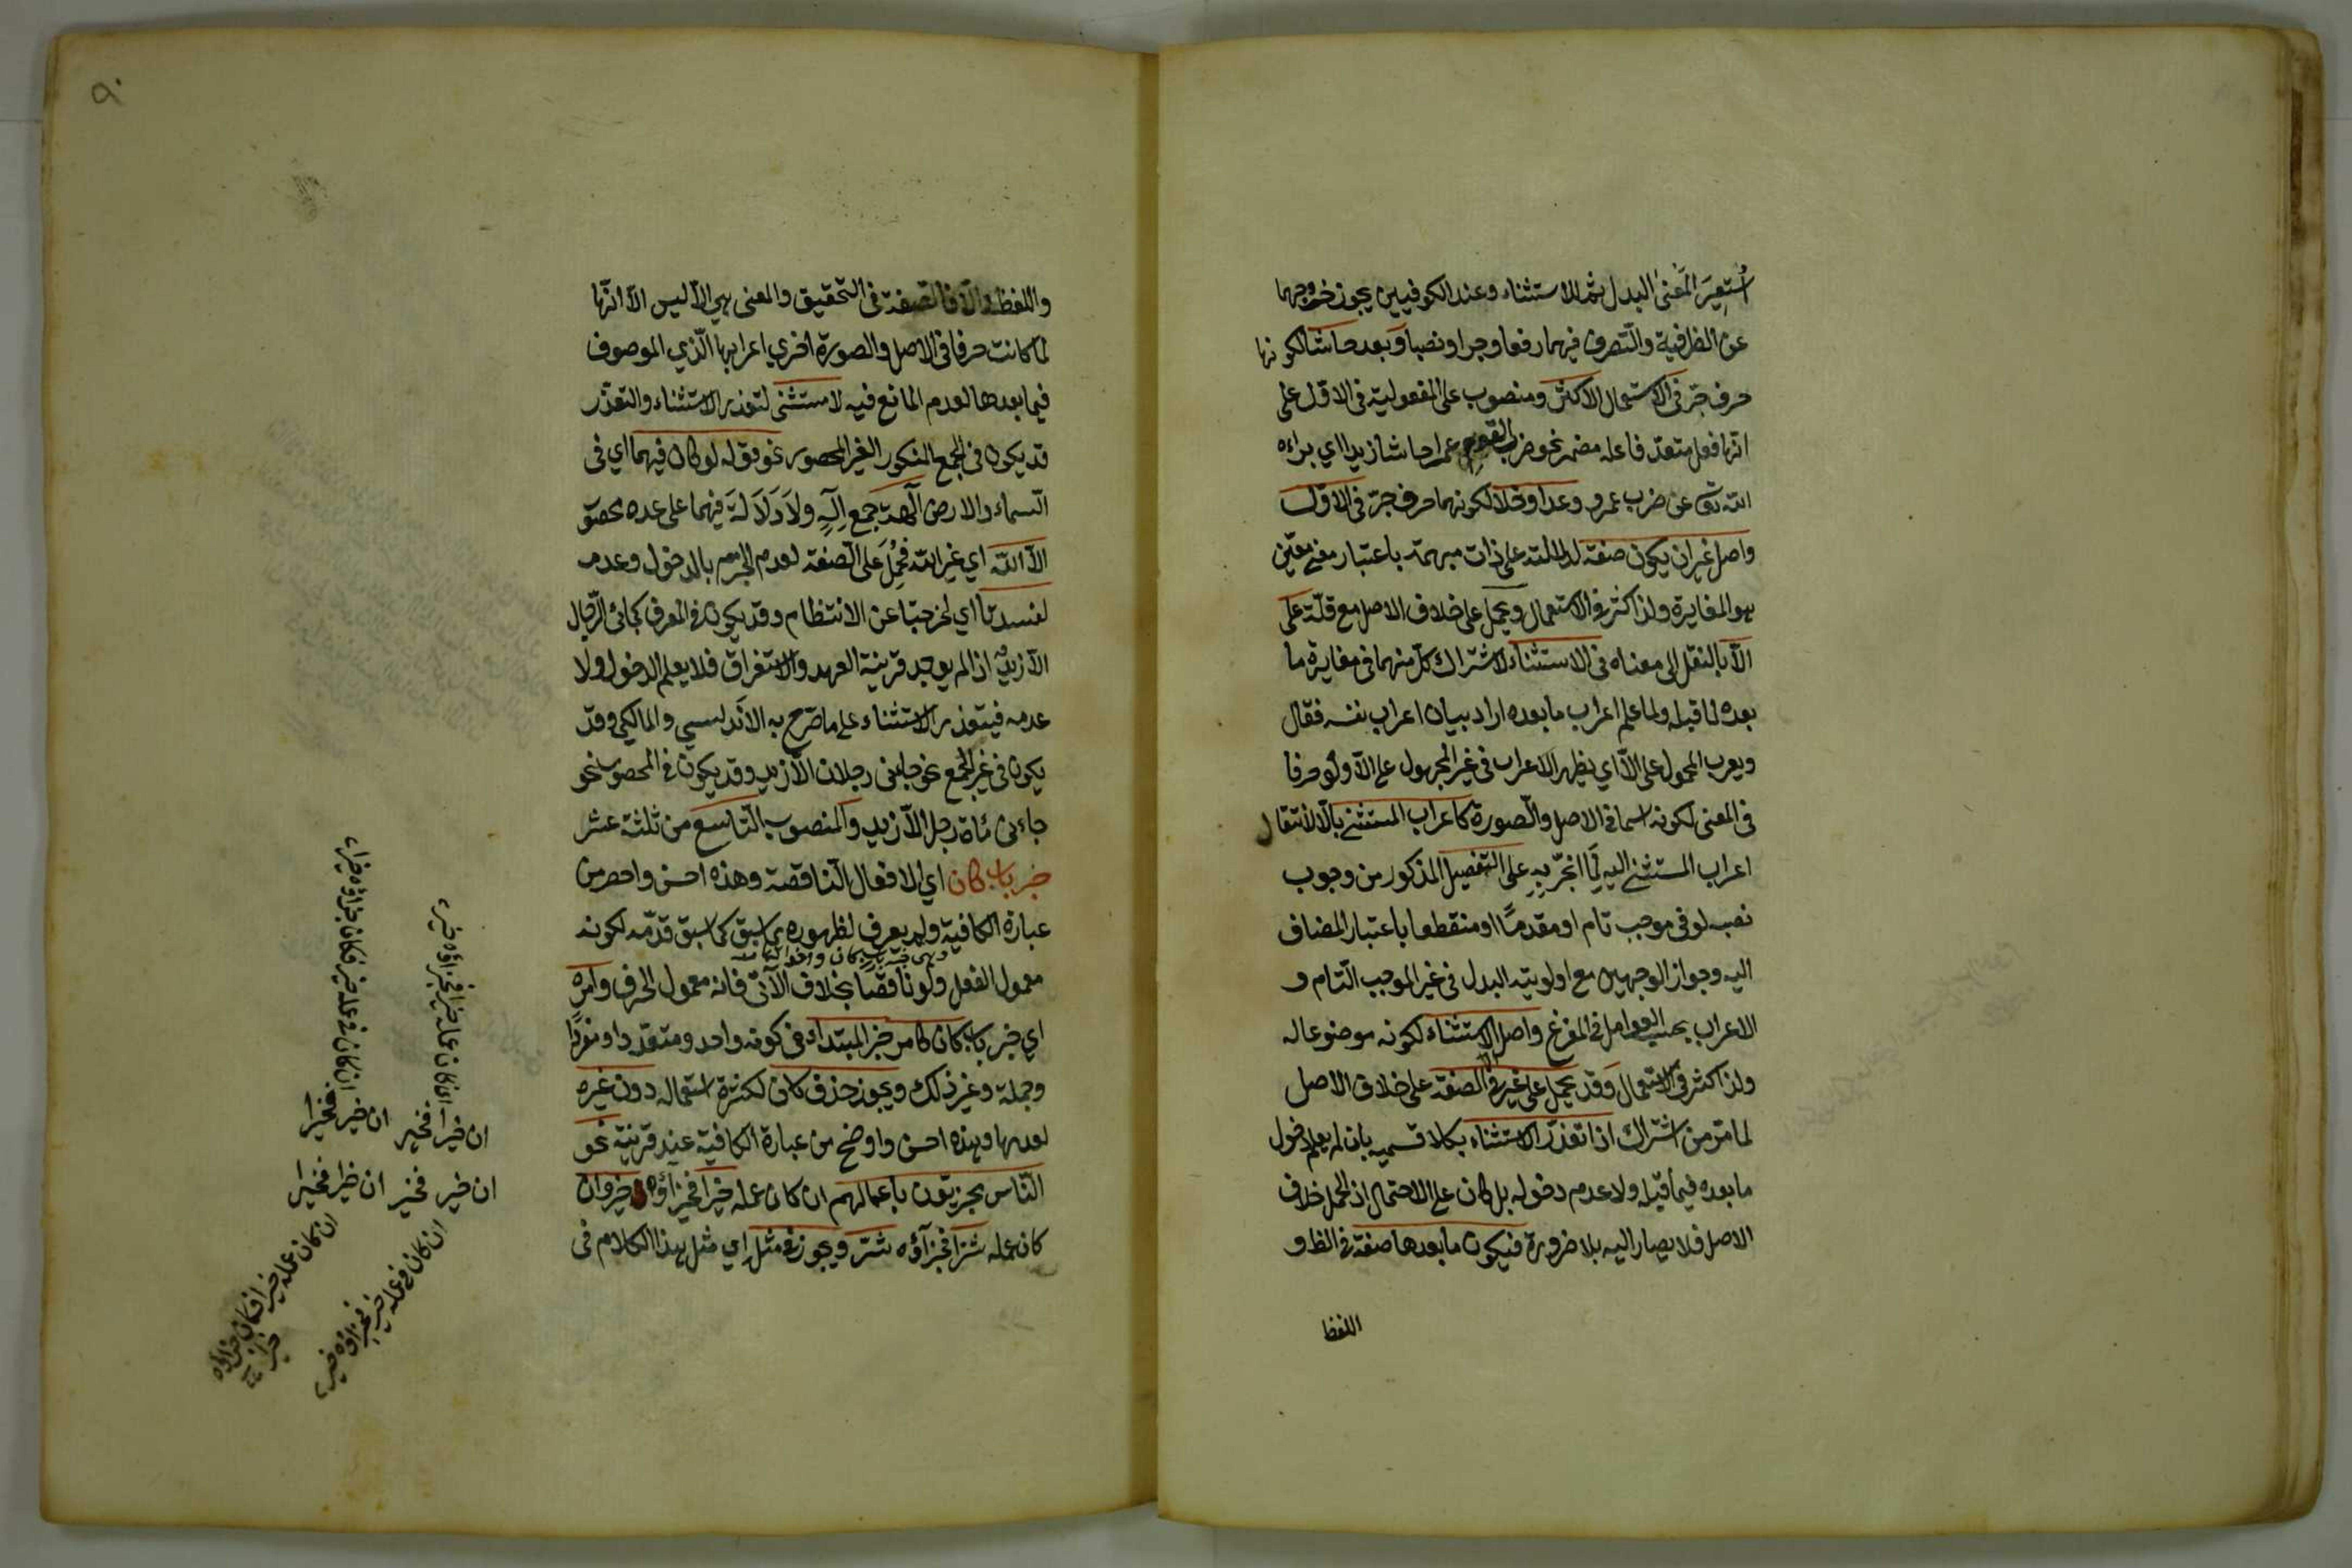 اُستعِيرَ لمَعنىٰ البدل ثم للاستثناء وعند الكوفيين يجوز خروجهما
عن الظرفية والتّصرف فيهما رفعا وجرا ونصبا وبعد حاشا لكونها
حرف جرّ في الاستعمال الاكثر ومنصوب على المفعولية في الاقل على
انها فعل متعدّ فاعله مضمر نحو ضرب القوم عمرا حاشا زيدا اي براءه
الله تعالى عن ضرب عمرو وعدا وخلا لكونهما حرف جرّ في الاقل
واصل غير ان يكون صفة لدلالته على ذات مبهمة باعتبار معنى معيّن
هو المغايرة ولذا كثر في الاستعمال ويحمل على خلاف الاصل مع قلّة على
الاّ بالنقل الى معناه في الاستثناء لاشتراك كلّ منهما في مغايرة ما
بعده لما قبله ولما علم اعراب ما بعده اراد بيان اعراب نفسه فقال
ويعرب المحمول على الاّ اي يظهر الاعراب في غير المحمول على الاّ ولو حرفا
في المعنى لكونه اسما في الاصل والصّورة كاعراب المستثنى بالاّ لانتقال
اعراب المستثنى اليه لَمّا انجرّ بِهِ على التفصيل المذكور من وجوب
نصبه لو في موجب تام او مقدمًا او منقطعا باعتبار المضاف
اليه وجواز الوجهين مع اولوية البدل في غير الموجب التّام و
الاعراب بحسب العوامل في المفرغ واصل الاّ الاستثناء لكونه موضوعا له
ولذا كثر في الاستعمال وَقد يحمل على غير في الصفة على خلاف الاصل
لما مرّ من اشتراك اذا تعذّر الاستثناء بكلا قسميه بان لم يعلم دخول
ما بعده فيما قبله ولا عدم دخوله بل كان على الاحتمال اذ الحمل خلاف
الاصل فلا يصار اليه بلا ضرورة فيكون ما بعدها صفة في الظ و
اللفظ
٩٠
واللفظ والاّ فالصفة في التّحقيق والمعنى هي الاّ ليس الاّ انّها
لمّا كانت حرفا في الاصل والصورة اجري اعرابها الّذي للموصوف
فيما بعدها لعدم المانع فيه لا مستثنى لتعذر الاستثناء والتعذّر
قد يكون في الجمع المنكور الغير المحصور نحو قوله لو كان فيهما اي في
السّماء والارض آلهة جمع اِلٰهٍ ولاَ دَلاَلَةَ فيهما على عدد محصور
الاّ اللّه اي غير الله فحُمِلَ على الصّفة لعدم الجزم بالدخول وعدمه
لفسدتا اي لخرجتا عن الانتظام وقد يكون في المعرف كجائني الرّجال
الاّ زيدٌ اذا لم يوجد قرينة العهد والاستغراق فلا يعلم الدخول ولا
عدمه فيتعذر الاستثناء على ما صرّح به الاَندلسي والمالكي وقد
يكون في غير الجمع نحو جاءني رجلان الاّ زيد وقد يكون في المحصور نحو
جاءني مائة رجل الاّ زيد والمنصوب التّاسع من ثلثة عشر
خبر باب كان اي الافعال النّاقصة وهذه احسن واخصر من
عبارة الكافية ولم يعرف لظهوره بما سبق كما سبق قدّمه لكونه
وهي خبر باب كان واخواتها
معمول الفعل ولو ناقصًا بخلاف الآتي فانه معمول الحرف وامره
اي خبر باب كان كامر خبر المبتداء في كونه واحد ومتعدّد او مفردًا
وجملة وغير ذلك ويجوز حذف كان لكثرة استعماله دون غيره
لعدمها وهذه احسن واوضح من عبارة الكافية عند قرينة نحو
النّاس مجزيّون باعمالهم ان كان عمله خيرا فجزآؤه خير وان
كان عمله شرّا فجزآؤه شرّ ويجوز في مثل اي مثل هذا الكلام في
ان كان في عمله خير فكان جزاؤه خيرا
ان كان عمله خيرا فجزاؤه خير
ان خير فخيرا
ان خيرا فخير
ان خيرا فخيرا
ان خير فخير
ان كان عمله خيرا فكان جزاؤه
خيرا
ان كان في عمله خير فجزاؤه خير